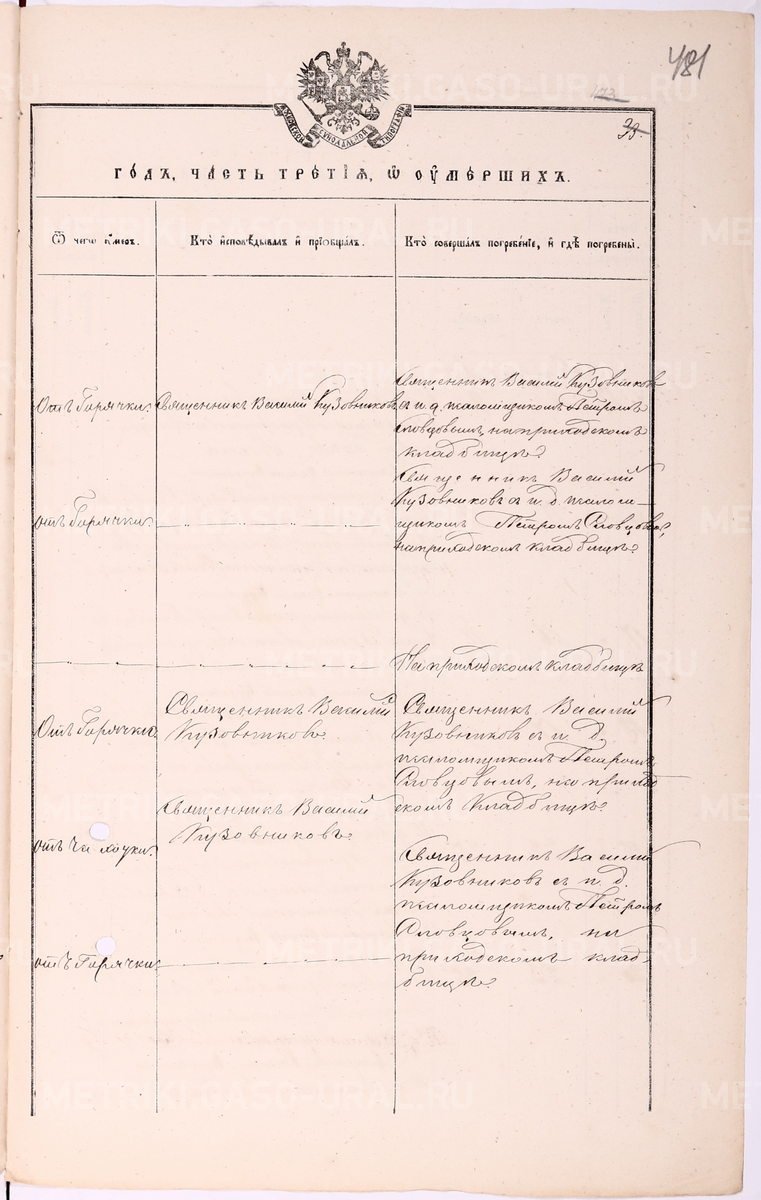 481
173
33.
МОСКОВСКОЙ СѴНОДАЛЬНОЙ ТИПОГРАФІИ
ГОДЪ, ЧАСТЬ ТРЕТІѦ, Ѿ ОУМЕРШИХЪ.
Ѿ чегѡ ᲂумеръ.
Кто исповѣдывалъ и пріобщалъ.
Кто совершалъ погребеніе, и гдѣ погребены.
Отъ Горячки.
Священникъ Василій Кузовниковъ
Священникъ Василій Кузовниковъ
съ и. д. псаломщикомъ Петромъ
Словцовымъ, на приходскомъ
кладбищѣ.
отъ Горячки.
Священникъ Василий
Кузовниковъ съ и. д. псалом-
щикомъ Петромъ Словцовы,
на приходскомъ кладбищѣ.
На приходскомъ кладбищѣ
Отъ Горячки.
Священникъ Василій
Кузовниковъ.
Священникъ Василій
Кузовниковъ съ и. д.
псаломщикомъ Петромъ
Словцовымъ, на приход
скомъ кладбищѣ.
отъ Чахотки.
Священникъ Василий
Кузовниковъ.
Священникъ Василій
Кузовниковъ съ и. д.
псаломщикомъ Петромъ
Словцовымъ, на
приходскомъ клад-
бищѣ.
отъ Горячки.
METRIKI.GASO-URAL.RU